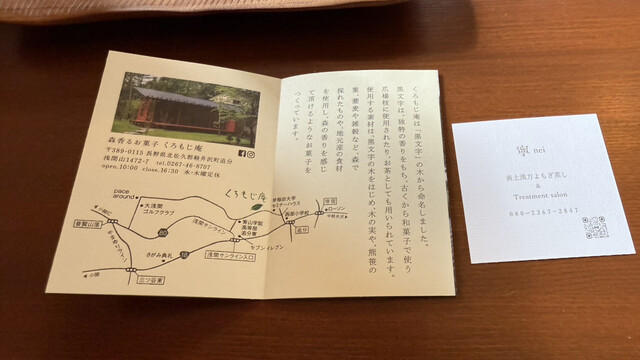 森香るお菓子 くろもじ庵
〒389-0115 長野県北佐久郡軽井沢町追分
浅間山1472-7 tel.0267-46-8707
open.10:00 close.16:30 水・木曜定休
くろもじ庵は、「黒文字」の木から命名しました。
黒文字は、独特の香りをもち、古くから和菓子で使う
爪楊枝に使用されたり、お茶としても用いられています。
使用する素材は、黒文字の木をはじめ、木の実や、熊笹の
葉、蕎麦や雑穀など、森で
採れたものや、地元産の食材
を使用し、森の香りを感じ
て頂けるようなお菓子を
つくっています。
くろもじ庵
pace
around
大浅間
ゴルフクラブ
浅間サンライン
青山学院
高等部
追分寮
早稲田大学
セミナーハウス
西部小学校
追分
ローソン
中軽井沢
セブンイレブン
浅間サンライン入口
80
18
さがみ典礼
三ツ谷東
小諸
nei
黄土漢方よもぎ蒸し
&
Treatment salon
080-2367-2847